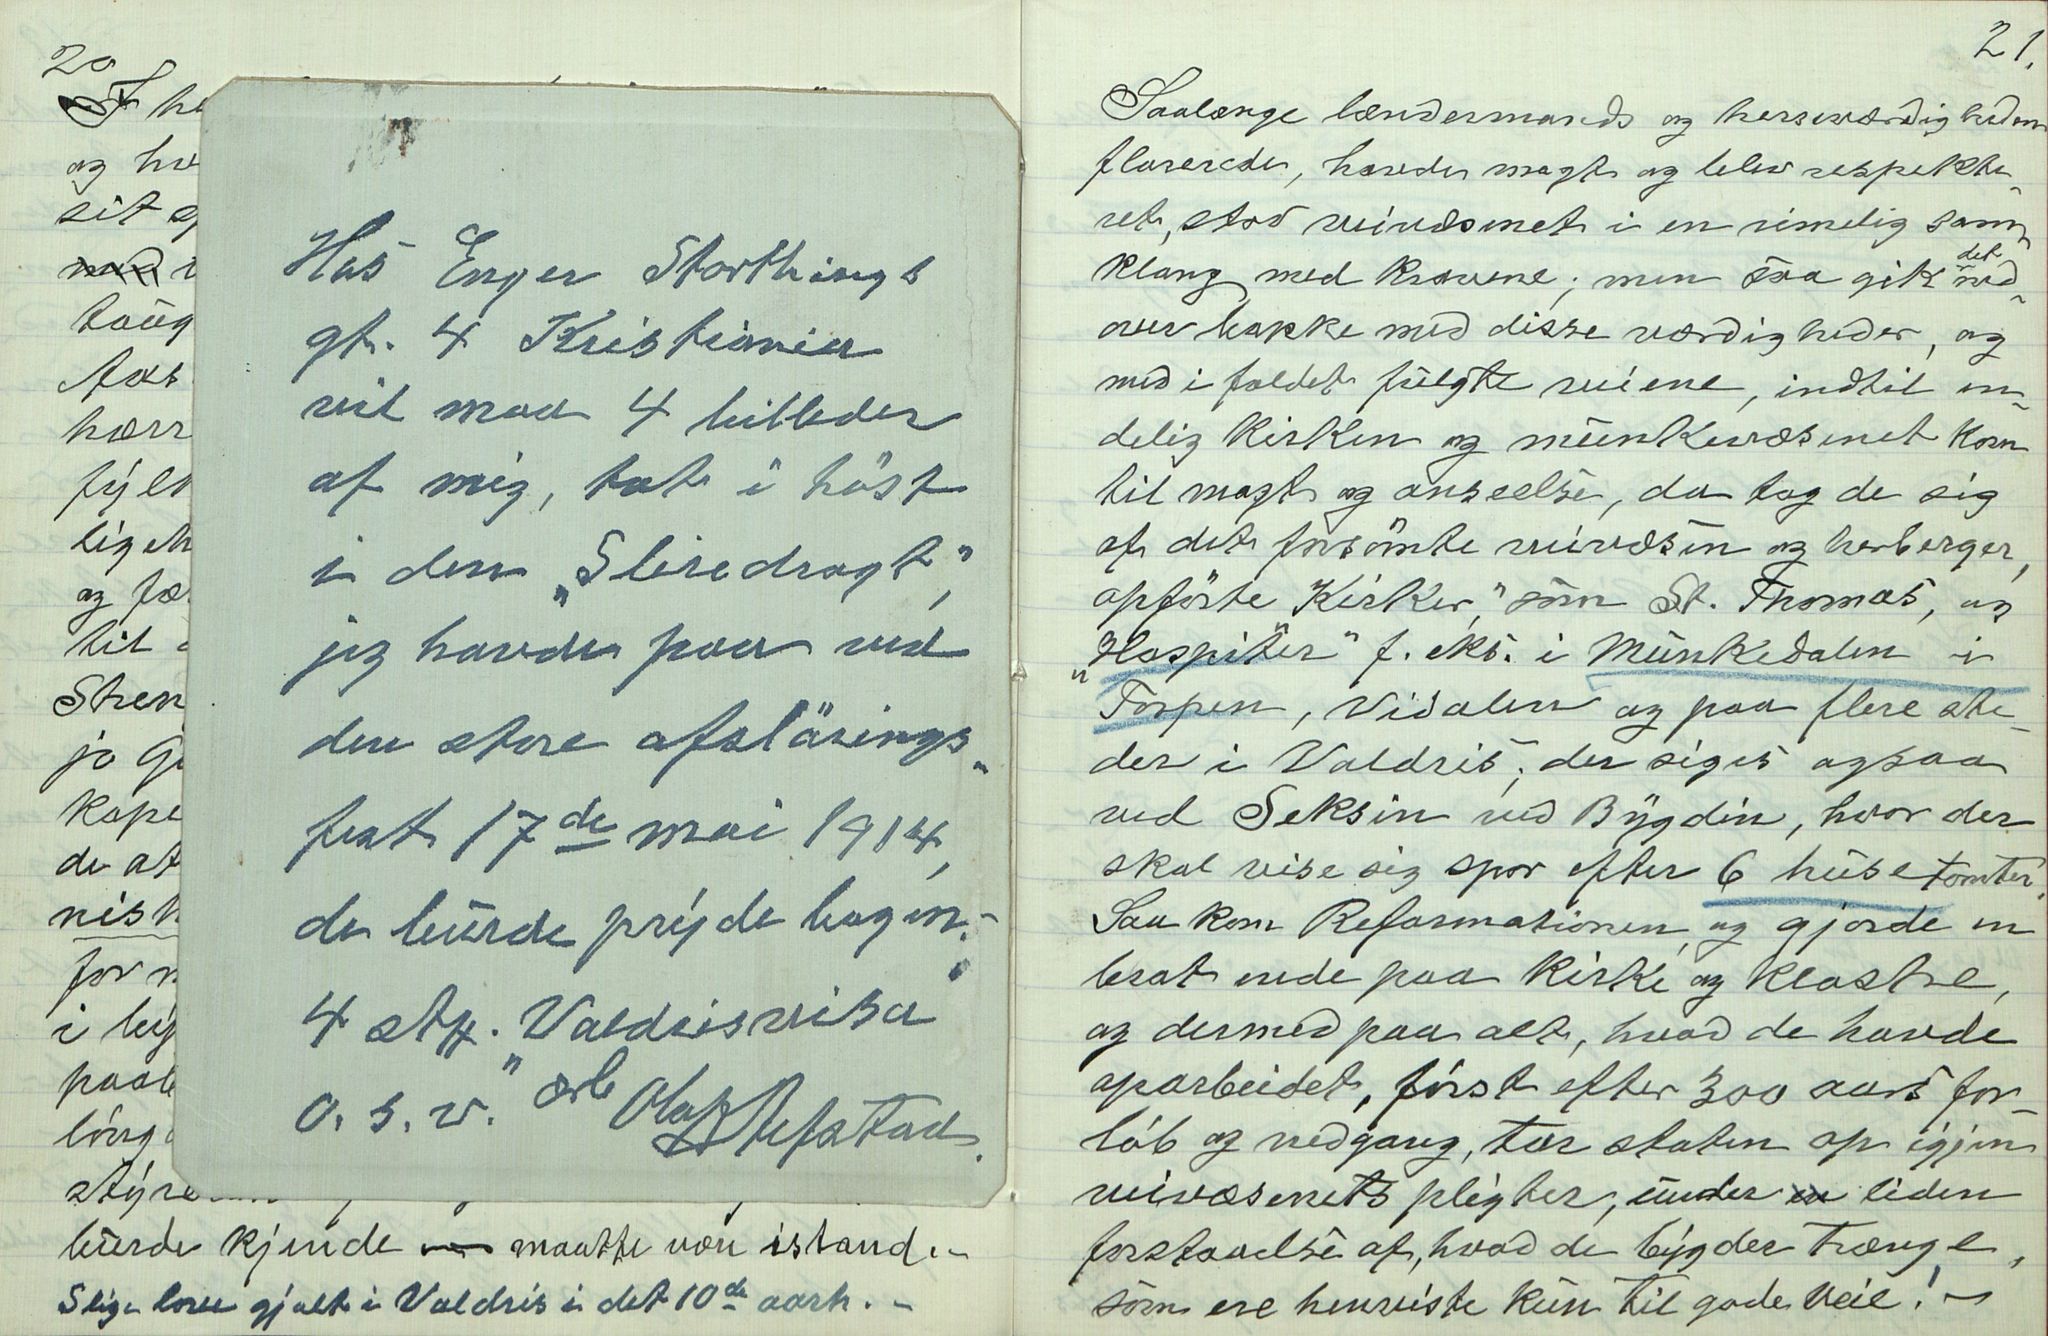 20
og
sit
lig
og
til
Stren
ja
kope
de at
nish
for
i
styre
burde kjende maatte være istand.-
Slige love gjalt i Valdris i det 10de aarh. -
Hos Enger Storthings
gt. 4 Kristiania
vil maa 4 billeder
af mig, tat i höst
i den „Sliredragt",
jeg havde paa ved
den store afslörings-
fest 17de mai 1914,
de burde pryde bogen.-
4 stk. Valdrisvisa
o. s. v." ærb Olaf
21.
Saalænge lændermands og herseværdigheden
florerede, havde magt og blev respekte-
ret, stod veivæsenet i en rimelig sam-
klang med kravene; men saa gik det ned-
over bakke med disse værdigheder, og
med i faldet fulgte veiene, indtil en-
delig kirken og munkevæsenet kom
til magt og anseelse, da tog de sig
af det forsömte veivæsen og herberger,
opförte "Kirker," som St. Thomas, og
„Hospitser" f. eks. i Munkedalen i
Torpen, Vidalen og paa flere ste-
der i Valdris; der siges ogsaa
ved Seksin ved Bygdin, hvor der
skal vise sig spor efter 6 huse tomter.
Saa kom Reformationen, og gjorde en
brat ende paa kirke og klostre,
og dermed paa alt, hvad de havde
oparbeidet, först efter 300 aars for-
löb og nedgang, tar staten op igjen
veivæsenets pligter, under en liden
forstaaelse af, hvad de bygder trænge,
som ere henviste kun til gode veie! -